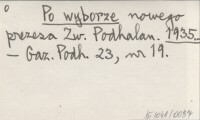 Po wyborze nowego
prezesa Zw. Podhalan. 1935.
— Gaz. Podh. 23, nr 19.